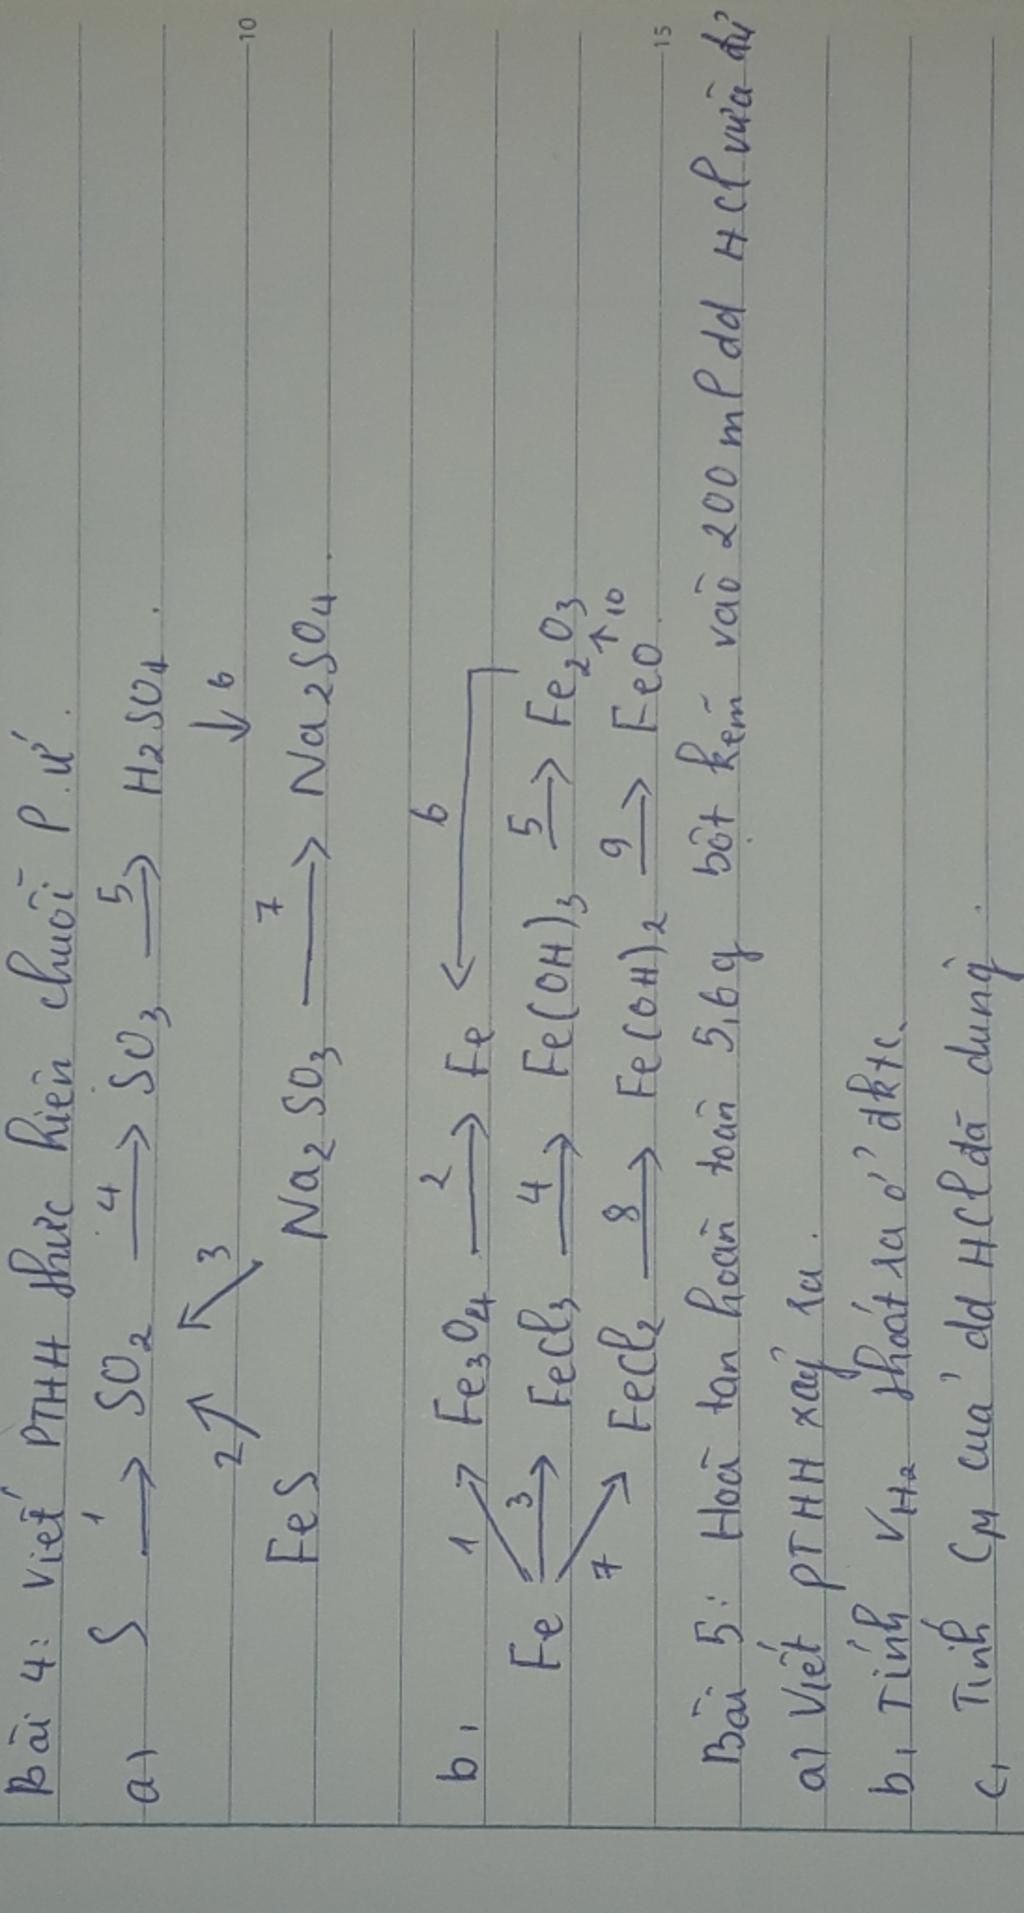 Bài 4: Viết PTHH thực hiện chuỗi P.ứ.
a) S 1→ SO2 4→ SO3 5→ H2SO4.
10
2↗ ↖3 ↓6
FeS Na2SO3 7→ Na2SO4.
b, Fe 1→ Fe3O4 2→ Fe ← 6
3→ FeCl3 4→ Fe(OH)3 5→ Fe2O3
↑10
7→ FeCl2 8→ Fe(OH)2 9→ FeO
15
Bài 5: Hoà tan hoàn toàn 5,6g bột kẽm vào 200ml dd HCl vừa đủ
a) Viết PTHH xảy ra.
b, Tính VH2 thoát ra ở đktc.
c, Tính CM của dd HCl đã dùng.